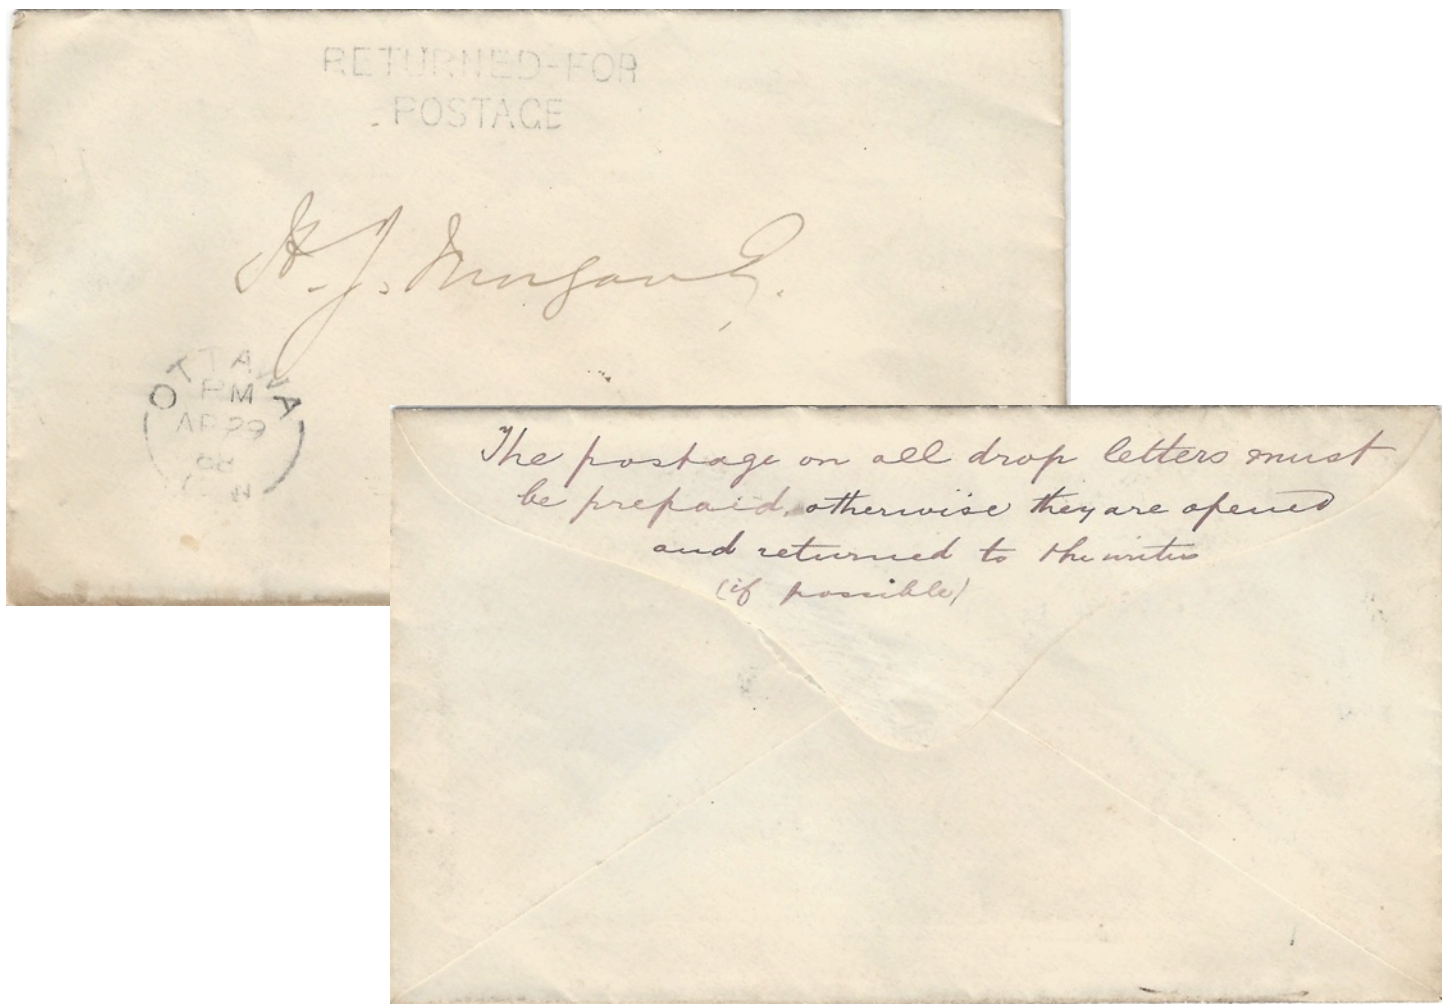 RETURNED-FOR
POSTAGE
H. J. Morgan E.
OTTAWA
PM
AP 29
68
C.W
The postage on all drop letters must
be prepaid, otherwise they are opened
and returned to the writer
(if possible)